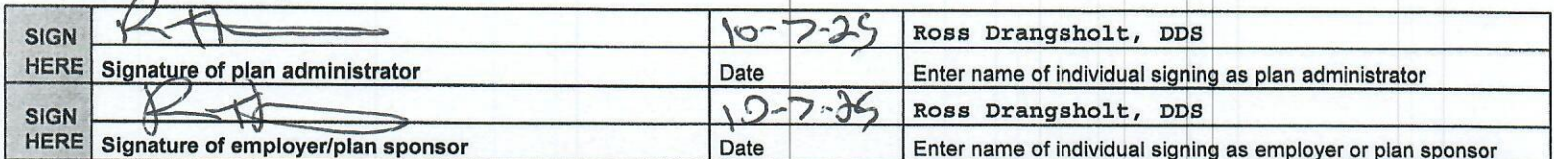 SIGN HERE 10-7-25 Ross Drangsholt, DDS
Signature of plan administrator Date Enter name of individual signing as plan administrator
SIGN HERE 10-7-25 Ross Drangsholt, DDS
Signature of employer/plan sponsor Date Enter name of individual signing as employer or plan sponsor